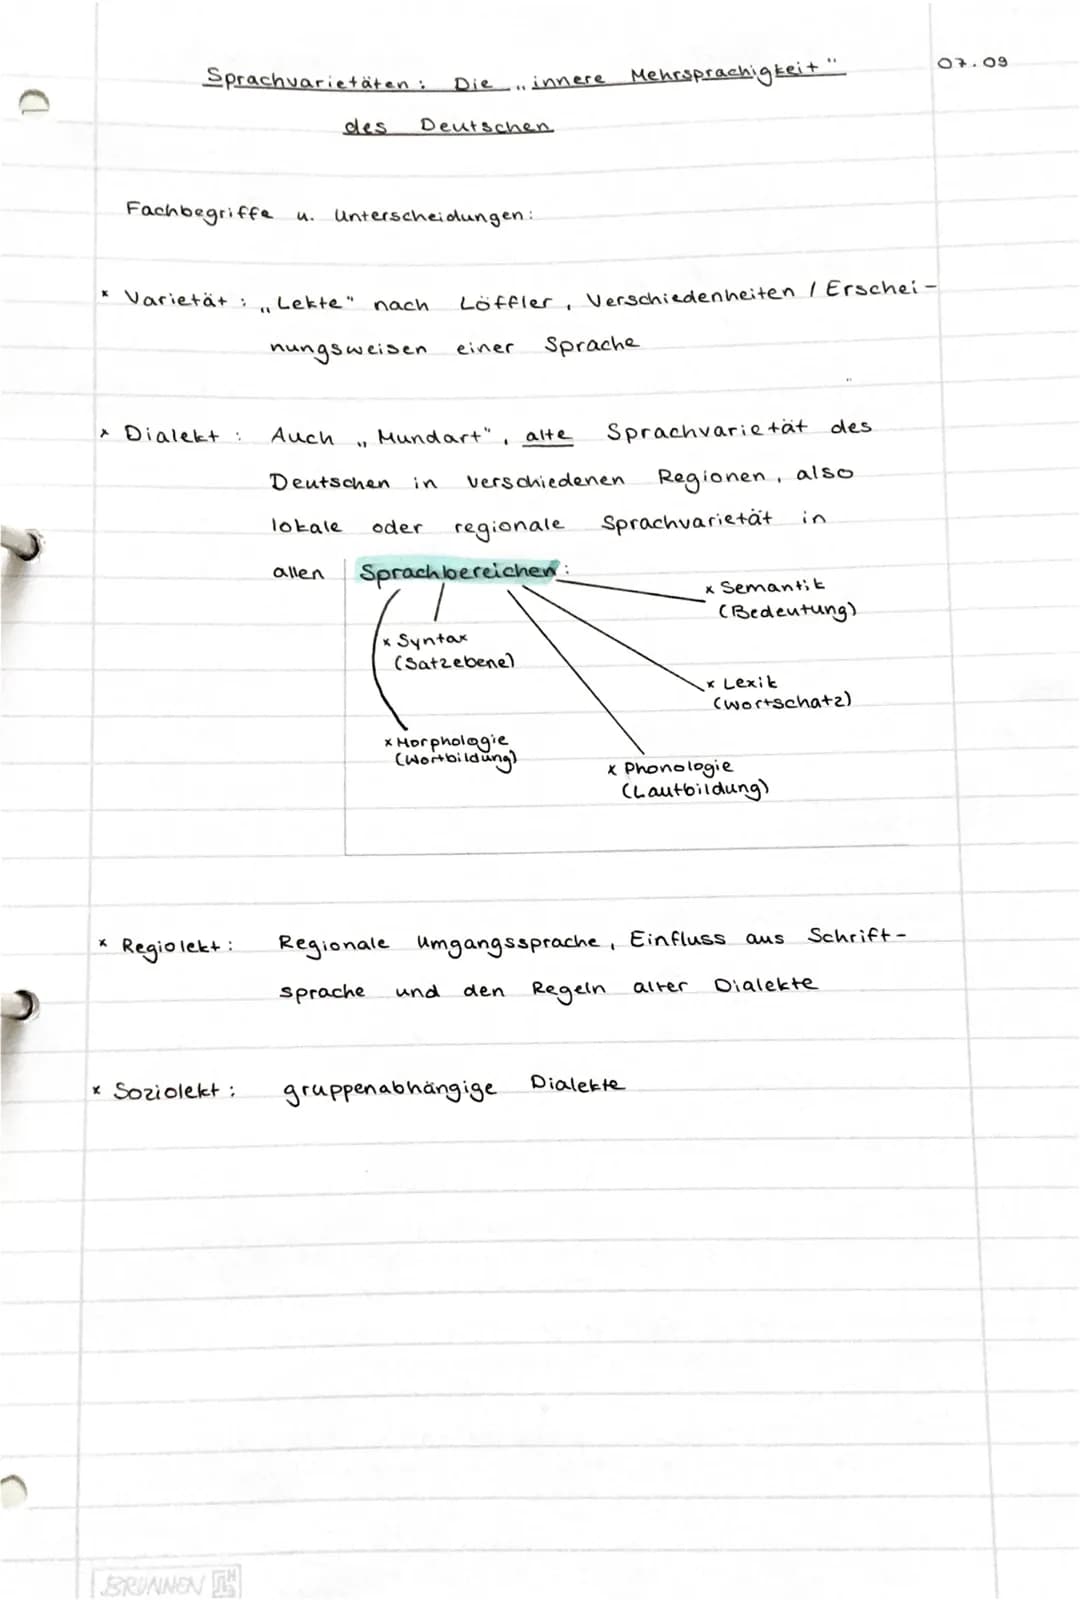 Sprachvarietäten: Die „innere Mehrsprachigkeit"
07.09
des Deutschen
Fachbegriffe u. Unterscheidungen:
* Varietät: „Lekte" nach Löffler, Verschiedenheiten / Erschei-
nungsweisen einer Sprache
* Dialekt: Auch „Mundart", alte Sprachvarietät des
Deutschen in verschiedenen Regionen, also
lokale oder regionale Sprachvarietät in
allen Sprachbereichen:
x Semantik
(Bedeutung)
x Syntax
(Satzebene)
x Lexik
(Wortschatz)
x Morphologie
(Wortbildung)
x Phonologie
(Lautbildung)
* Regiolekt: Regionale Umgangssprache, Einfluss aus Schrift-
sprache und den Regeln alter Dialekte
* Soziolekt: gruppenabhängige Dialekte
BRUNNEN